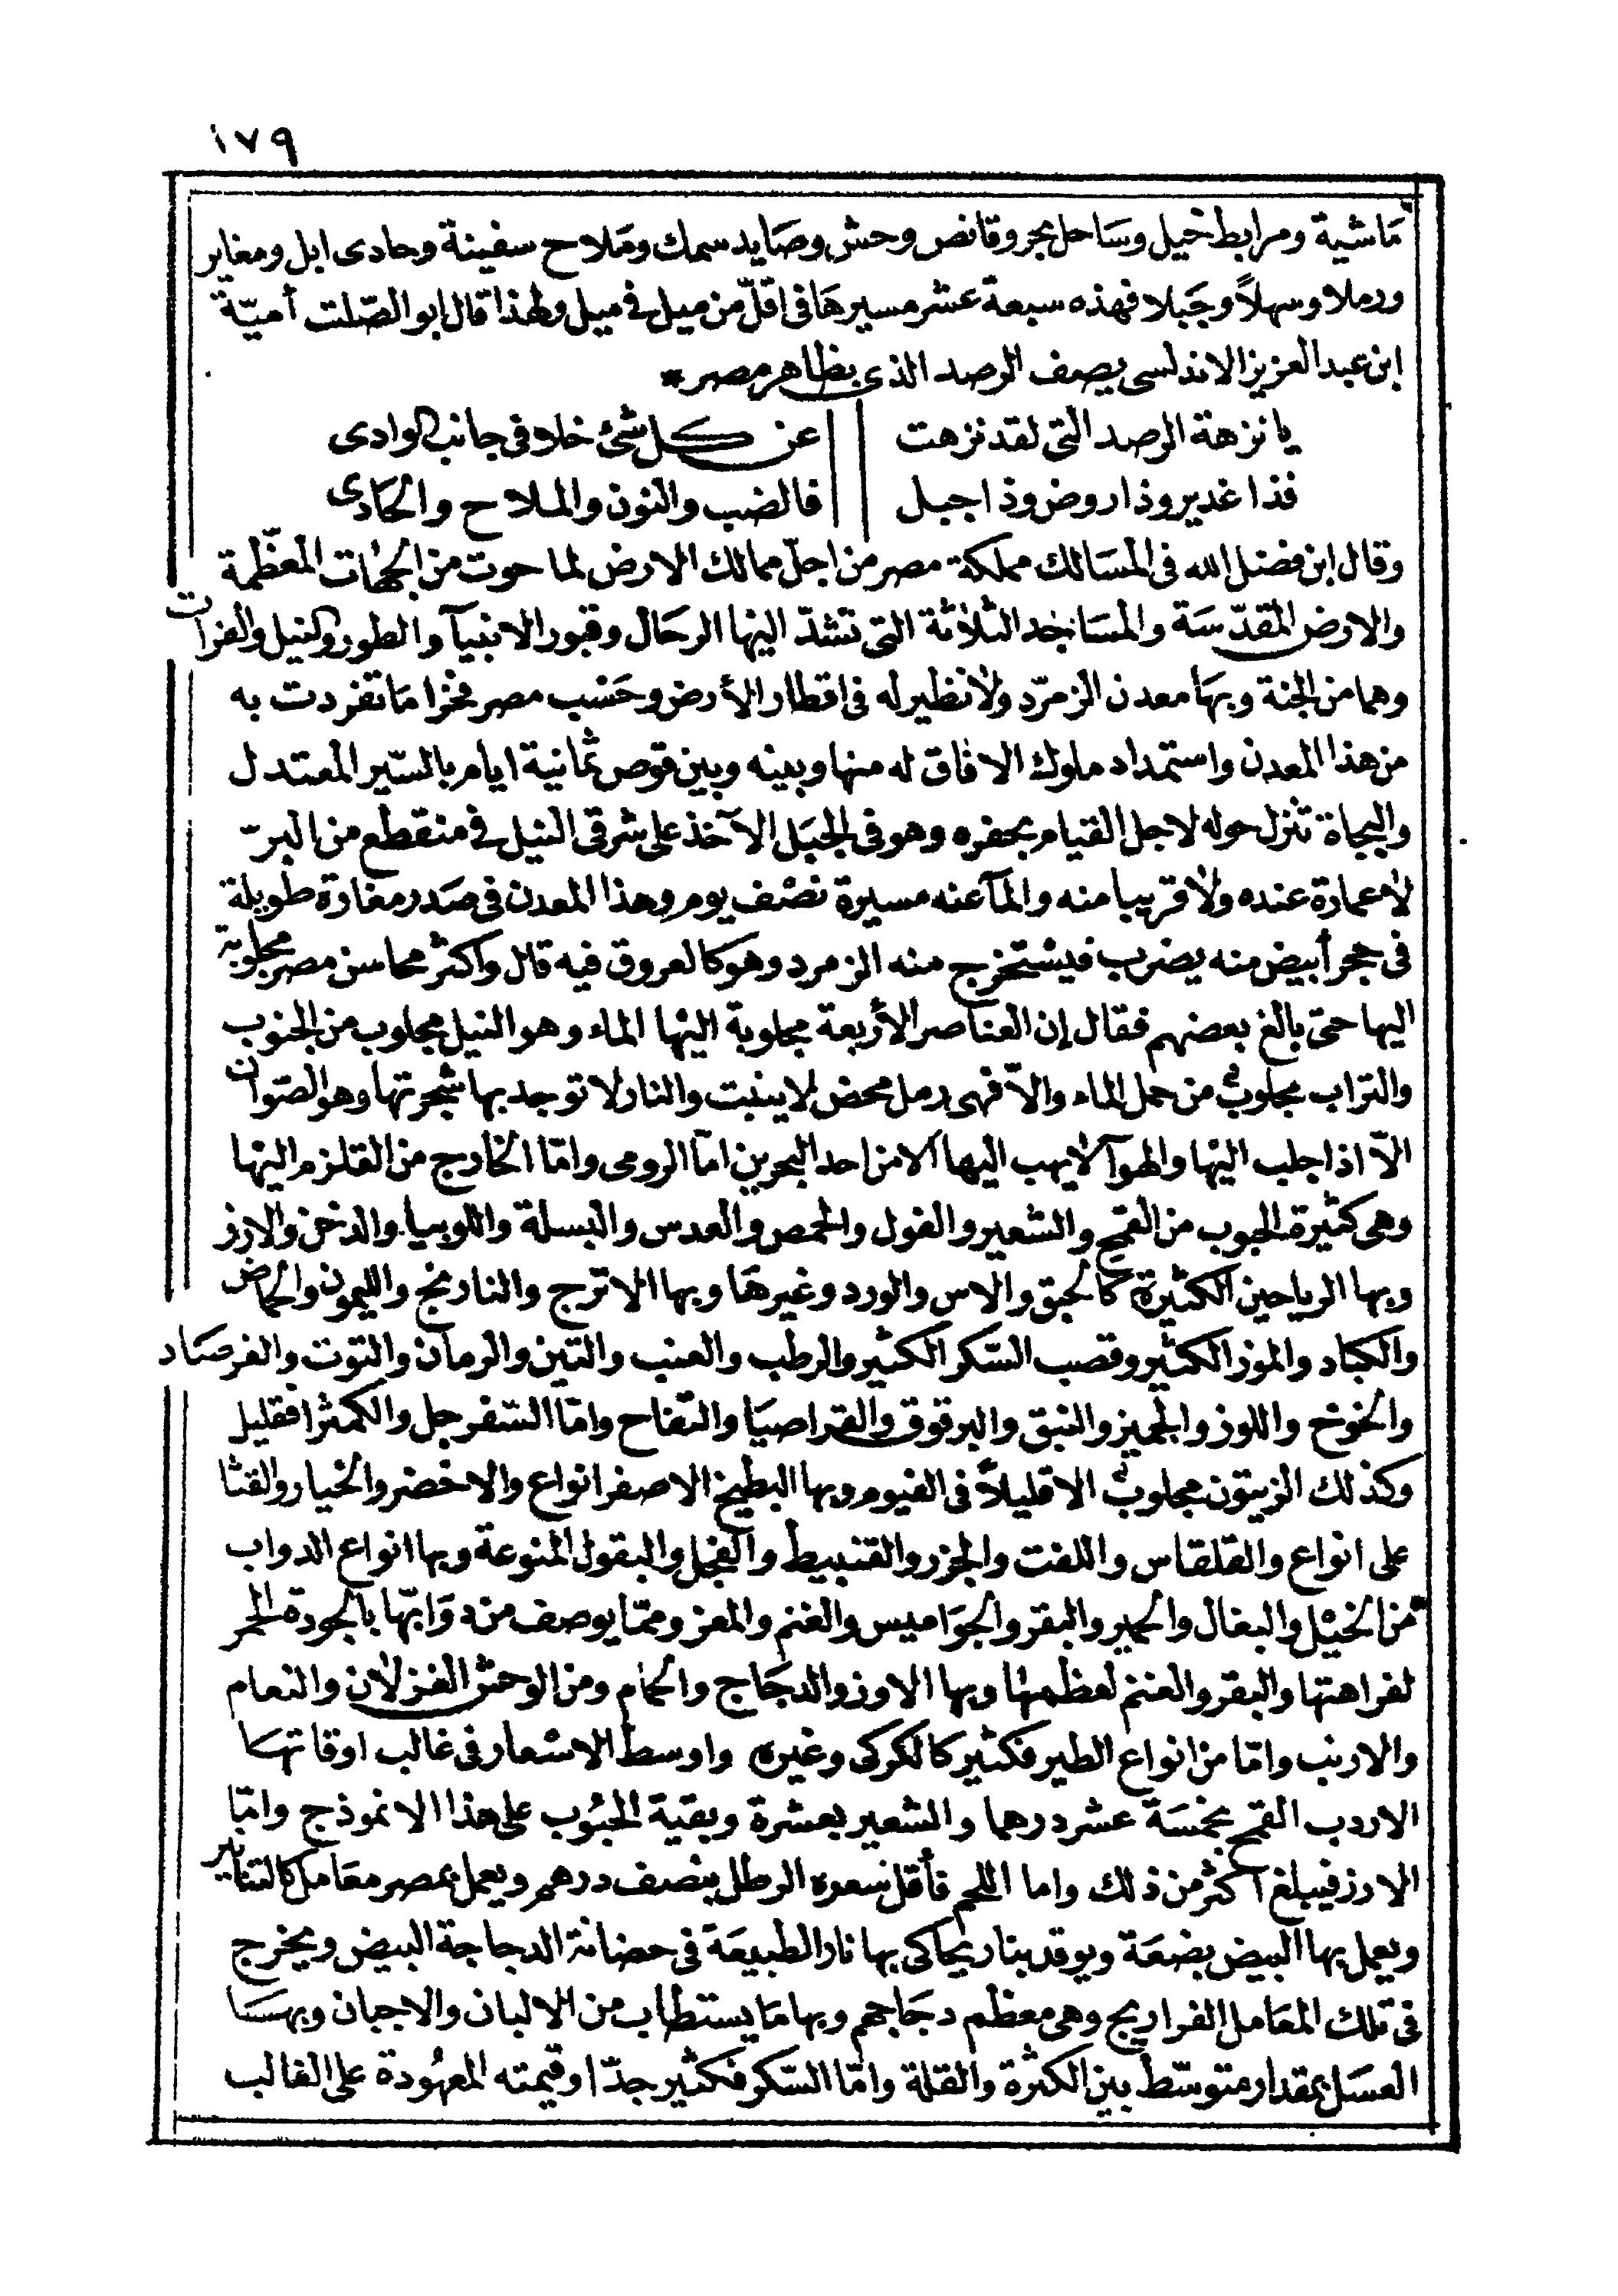 ١٧٩
مَاشية ومرابط خيل وسَاحل بحر وقانص وحش وصَايد سمك ومَلاح سفينة وحادى ابل ومغاير
ورملا وسهلاً وجَبلا فهذه سبعة عشر مسيرهَا فى اقلّ من ميل فى ميل ولهذا قال ابو الصّلت أميّة
ابن عبد العزيز الاندلسى يصف الرصد الذى بظاهر مصر *
يا نزهة الرصد التى لقد نزهت عن كل شئ خلا فى جانب الوادى
فذا غدير وذا روض وذا جبل فالضب والنون والملاح والحَادى
وقال ابن فضل الله فى المسَالك مملكة مصر من اجلّ ممالك الارض لما حوت من الجهَات المعظّمة
والارض المقدّسَة والمسَاجد الثلاثة التى تشدّ اليها الرحَال وقبور الانبيآ والطور والنيل والفرات
وهما من الجنة وبهَا معدن الزمرّد ولا نظير له فى اقطار الأرض وحَسْب مصر فخرا مَا تفردت به
من هذا المعدن واستمداد ملوك الافاق له منها وبينه وبين قوص ثمانية ايام بالسّير المعتدل
والبجاة تنزل حوله لاجل القيام بحفره وهو فى الجبَل الآخذ على شرقى النيل فى منقطع من البرّ
لا عمارة عنده ولا قريبا منه والمآ عنه مسيرة نصْف يوم وهذا المعدن فى صَدر مغارة طويلة
فى حجر أبيض منه يضرب فيسْتخرج منه الزمرد وهو كالعروق فيه قال واكثر محاسن مصر مجلوبة
اليها حتى بالغ بعضهم فقال إن العناصر الأربعة مجلوبة اليْها الماء وهو النيل مجلوب من الجنوب
والتراب مجلوبٌ من حمل الماء والاّ فهى رمل محض لا ينبت والنار لا توجد بها شجرتها وهو الصّوان
الاّ اذا جلب اليْها والهوآ لا يهب اليها الا من احد البحرين امّا الرومى وامّا الخارج من القلزم اليْها
وهى كثيرة الحبوب من القمح والشعير والفول والحمص والعدس والبسلة واللوبيا والدخن والارز
وبها الرياحين الكثيرة كالحبق والاس والورد وغيرهَا وبها الاترج والنارنج والليمون والحماض
والكبّاد والموز الكثير وقصب السّكر الكثير والرطب والعنب والتين والرمان والتوت والفرصَاد
والخوخ واللوز والجميز والنبق والبرقوق والقراصيَا والتفاح وامّا السّفرجل والكمثرا فقليل
وكذلك الزيتون مجلوبٌ الا قليلاً فى الفيوم وبها البطيخ الاصفر انواع والاخضر والخيار والقثا
على انواع والقلقاس واللفت والجزر والقنبيط والفجل والبقول المنوعة وبها انواع الدواب
من الخيْل والبغال والحمير والبقر والجوَاميس والغنم والمعز وممّا يوصف من دوَابّها بالجودة الحمر
لفراهتها والبقر والغنم لعظمها وبها الاوز والدجَاج والحمام ومن الوحش الغزلان والنعام
والارنب وامّا من انواع الطير فكثير كالكركى وغيره واوسط الاسْعار فى غالب اوقاتهَا
الاردب القمح بخمسَة عشر درهما والشعير بعشرة وبقية الحبُوب على هذا الانموذج وامّا
الارز فيبلغ اكثر من ذلك واما اللحم فأقل سعره الرطل بنصف درهم ويعمل بمصر معَامل كالتنانير
ويعمل بها البيض بضعَة ويوقد بنار يحاكى بها نار الطبيعَة فى حضانة الدجاجة البيض ويخرج
فى تلك المعَامل الفراريج وهى معظم دجَاجهم وبها مَا يستطاب من الالبان والاجبان وبهَا
العسَل بمقدار متوسّط بين الكثرة والقلة وامّا السّكر فكثير جدّا وقيمته المعهُودة على الغالب